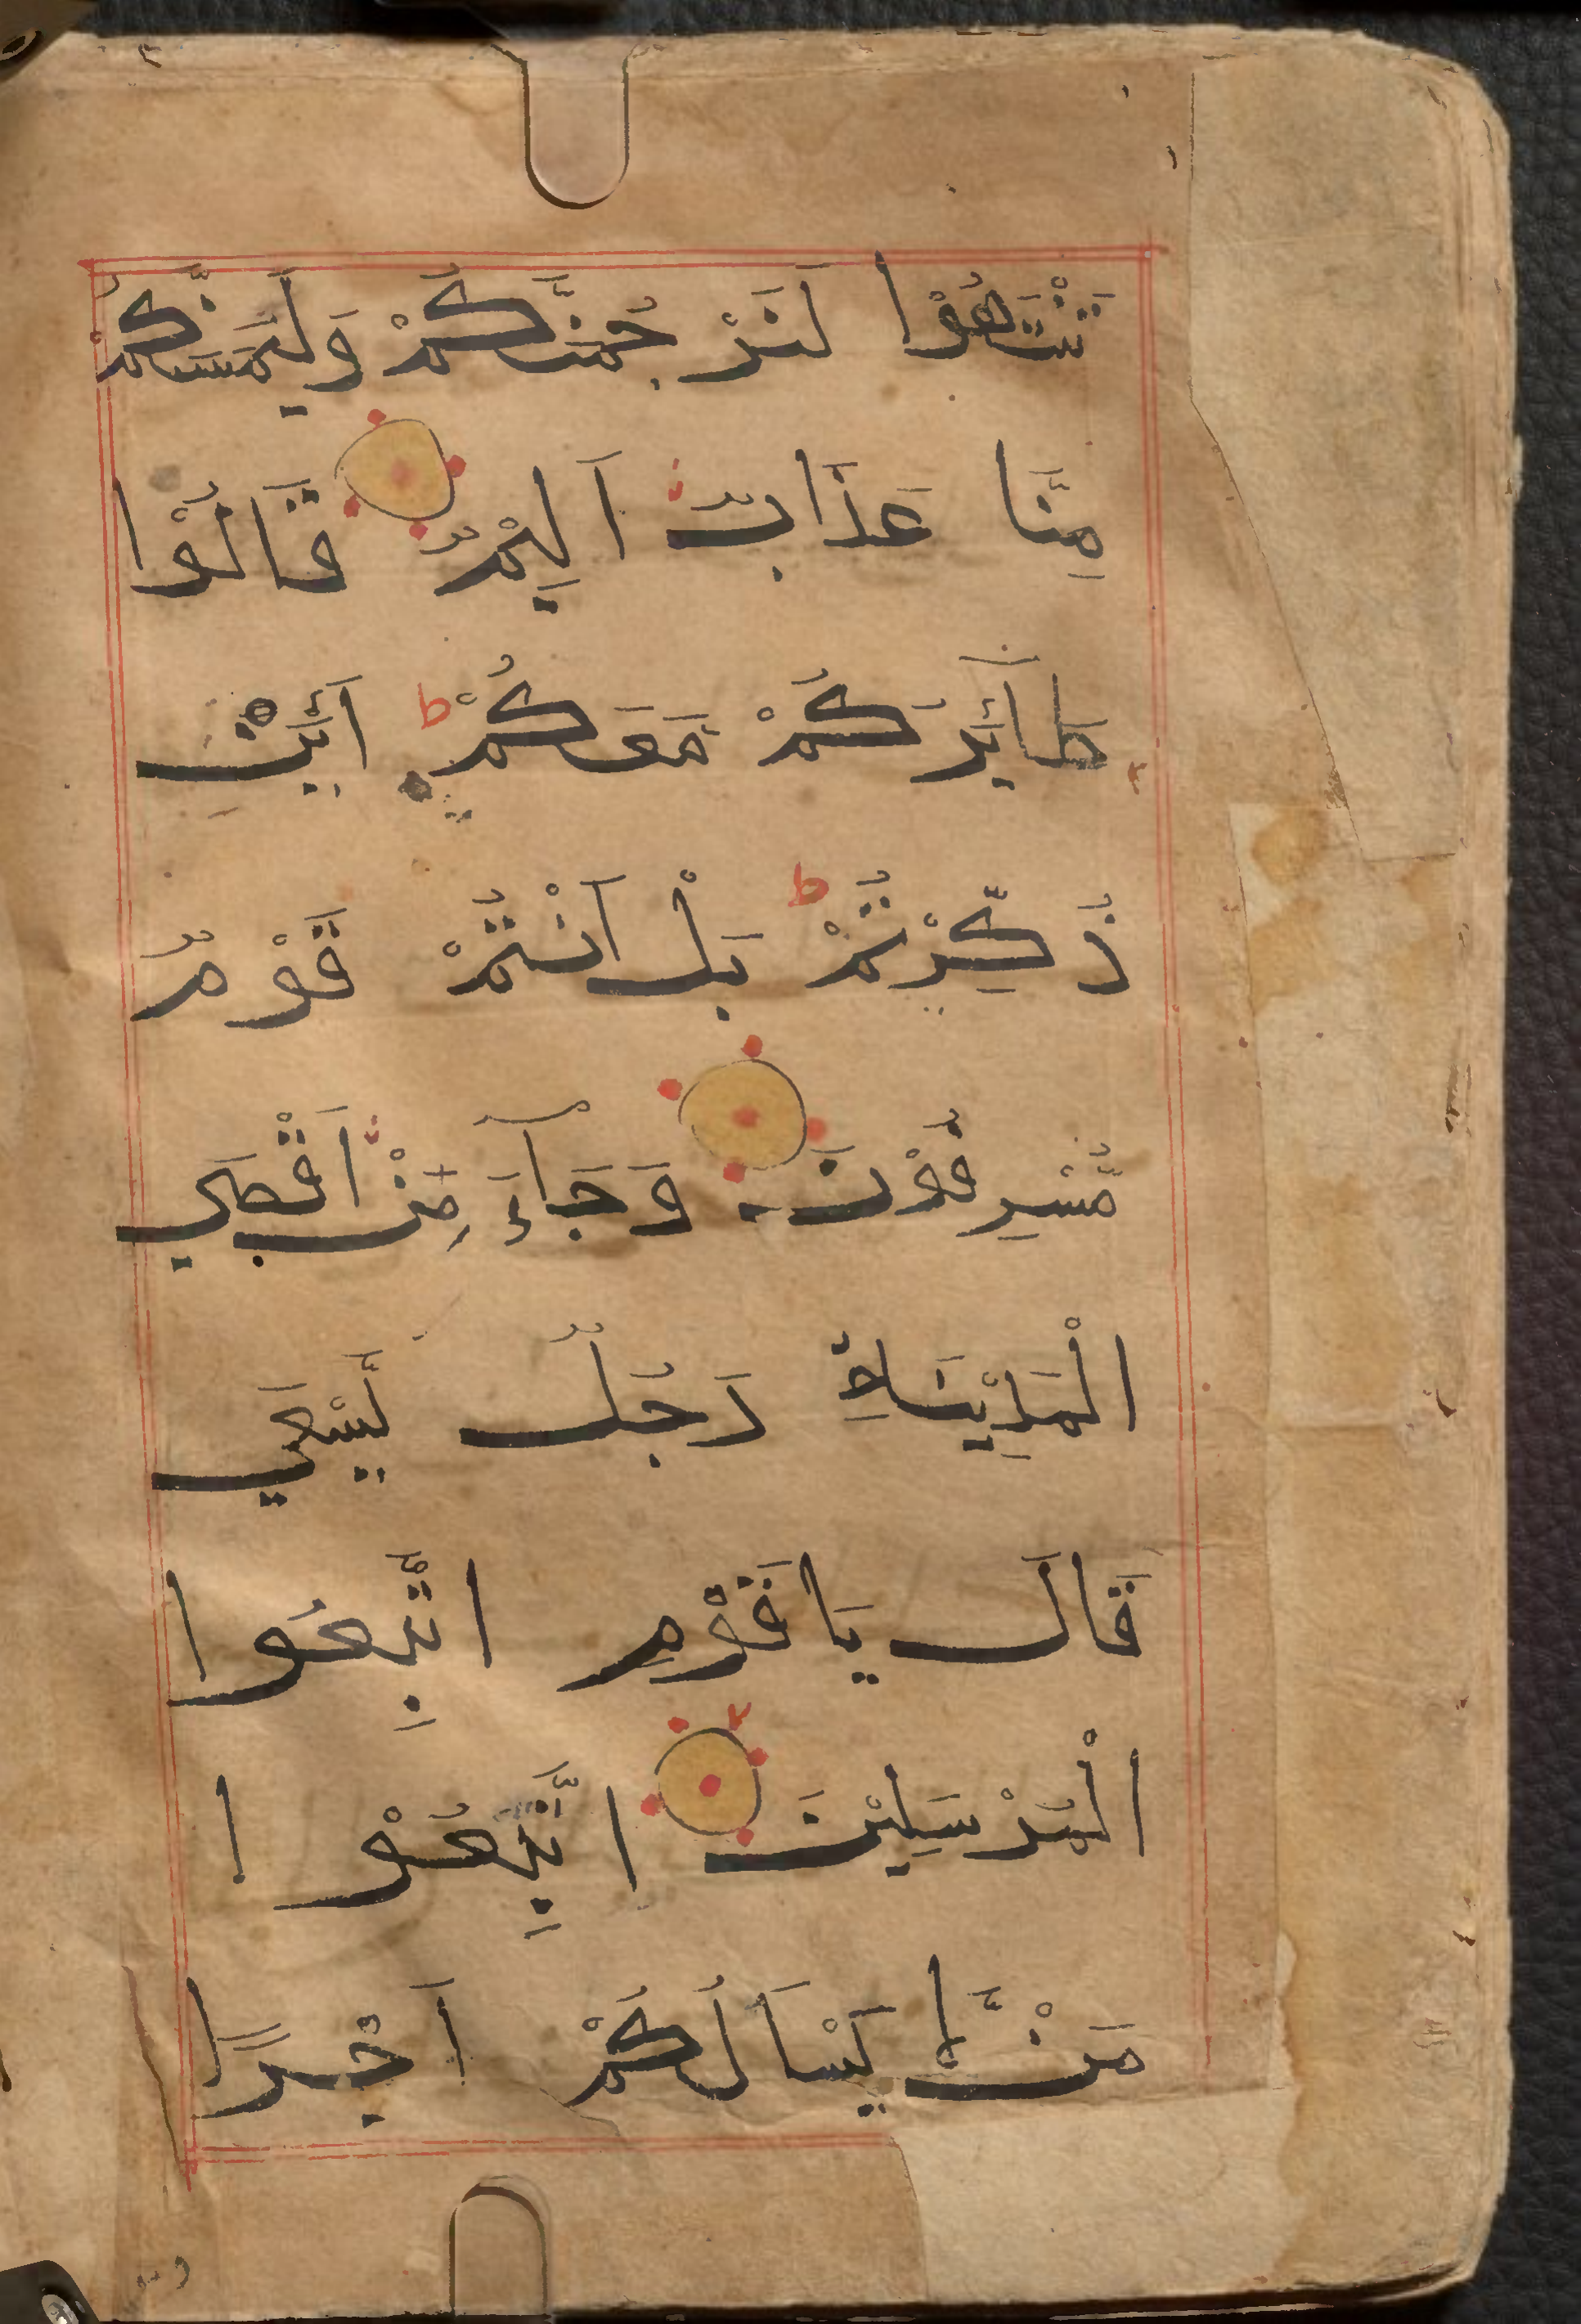 تَنْتَهُوْا لَنَرْجُمَنَّكُمْ وَلَيَمَسَّنَّكُمْ
مِنَّا عَذَابٌ اَلِيْمٌ قَالُوْا
طَآئِرُكُمْ مَعَكُمْ ط اَئِنْ
ذُكِّرْتُمْ ط بَلْ اَنْتُمْ قَوْمٌ
مُّسْرِفُوْنَ وَجَآءَ مِنْ اَقْصَي
الْمَدِيْنَةِ رَجُلٌ يَّسْعَي
قَالَ يَاقَوْمِ اتَّبِعُوا
الْمُرْسَلِيْنَ اتَّبِعُوْا
مَنْ لَّا يَسْاَلُكُمْ اَجْرًا